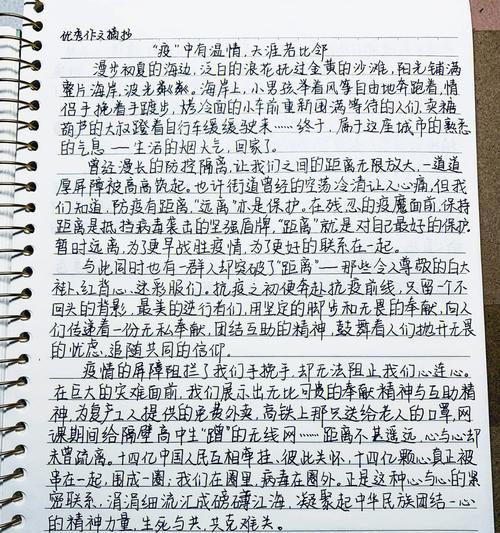 优秀作文摘抄
"疫"中有温情,天涯若比邻
漫步初夏的海边,泛白的浪花抚过金黄的沙滩,阳光铺满
整片海岸,波光粼粼。海岸上,小男孩举着风筝自由地奔跑着,情
侣手挽着手踱步,烤冷面的小车前重新围满等待的人们,卖糖
葫芦的大叔蹬着自行车缓缓驶来……终于,属于这座城市的熟悉
的气息——生活的烟火气,回家了。
曾经漫长的防控隔离,让我们之间的距离无限放大,一道道
厚屏障被高高筑起。也许街道曾经的空荡冷清让人心痛,但我
们知道,防疫有距离,"远离"亦是保护。在残忍的疫魔面前,保持
距离是抵挡病毒袭击的坚强盾牌,"距离"就是对自己最好的保护,
暂时远离,为了更早战胜疫情,为了更好的联系在一起。
与此同时也有一群人却突破了"距离"——那些令人尊敬的白大
褂、红背心、迷彩服们。抗疫之初便奔赴抗疫前线,只留个不
回头的背影,最美的逆行者们,用坚定的脚步和无畏的奉献,向人
们传递着一份无私奉献,团结互助的精神,鼓舞着人们抛开无畏
的忧虑,追随共同的信仰。
疫情的屏障阻拦了我们手挽手,却无法阻止我们心连心。
在巨大的灾难面前,我们展示出无比可贵的奉献精神与互助精
神,为复产工人提供的免费外卖,高铁上那只送给老人的口罩,网
课期间给隔壁高中生"蹭"的无线网……距离不甚遥远,心与心却
未曾疏离。十四亿中国人民互相牵挂、彼此关怀,十四亿颗心真正被
串在一起,围成一圈,我们在圈里,病毒在圈外。正是这种心与心的紧
密联系,涓涓细流汇成磅礴江海,凝聚起中华民族团结一心
的精神力量,生死与共,共克难关。